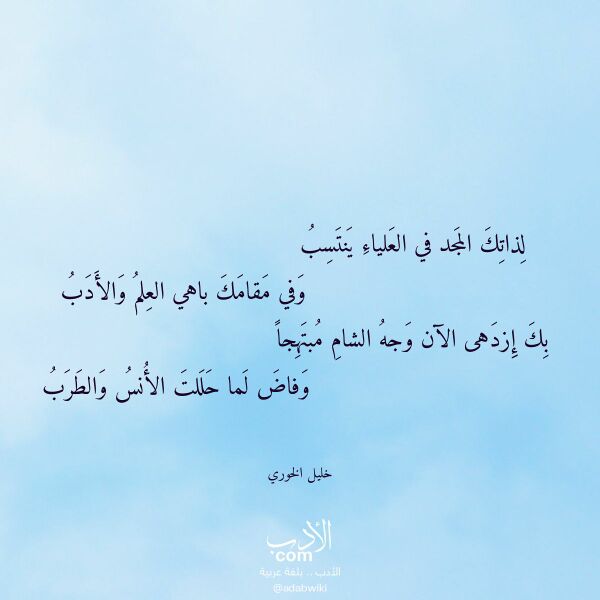 لِذاتِكَ المَجد في العَلياءِ يَنتَسِبُ
وَفي مَقامَكَ باهي العِلمُ وَالأَدَبُ
بِكَ إِزدَهى الآن وَجهُ الشامِ مُبتَهِجاً
وَفاضَ لَما حَلَلتَ الأُنسُ وَالطَرَبُ
خليل الخوري
الأدب
com
الأدب .. بلغة عربية
@adabwiki